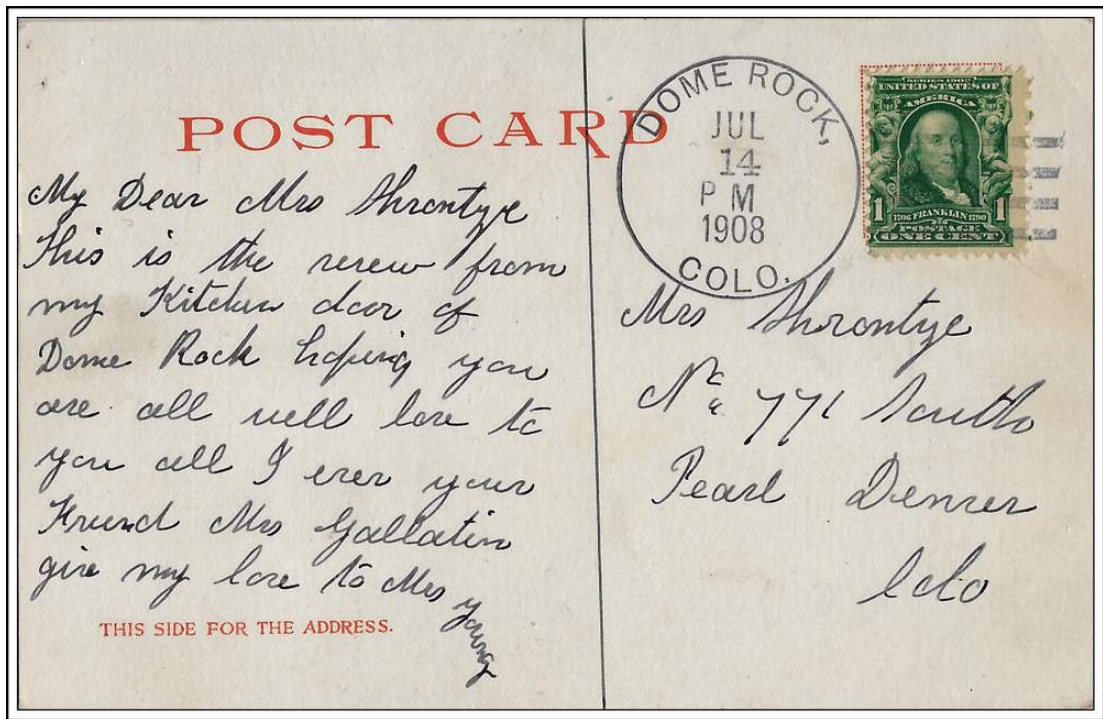 POST CARD
My Dear Mrs Shrontye
this is the reiew from
my Kitchen door of
Dome Rock hoping you
are all well love to
you all I ever your
Friend Mrs Gallatin
give my love to Mrs Young
THIS SIDE FOR THE ADDRESS.
DOME ROCK,
JUL
14
P M
1908
COLO.
SERIES 1902
UNITED STATES OF
AMERICA
1 1706 FRANKLIN 1790 1
POSTAGE
ONE CENT
Mrs Shrontye
No 771 South
Pearl Denver
Colo